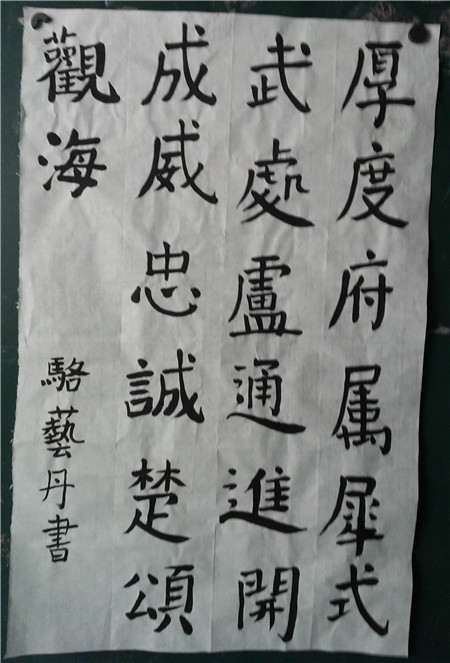 厚度府属犀式
武處盧通進開
成威忠誠楚頌
觀海
駱藝丹書